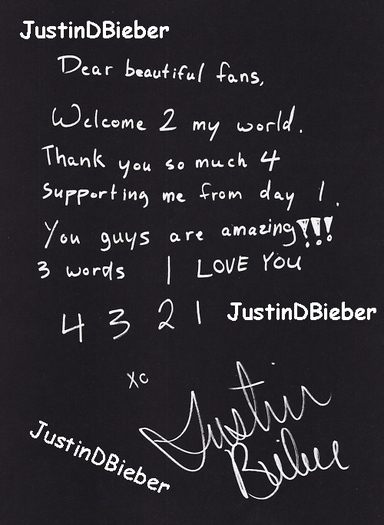 JustinDBieber
Dear beautiful fans,
Welcome 2 my world.
Thank you so much 4
supporting me from day 1.
You guys are amazing!!!
3 words | LOVE YOU
4 3 2 1 JustinDBieber
xc
Justin
Bieber
JustinDBieber